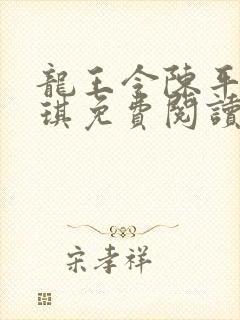 龍王令陳平
琪免費閱讀
宋孝祥